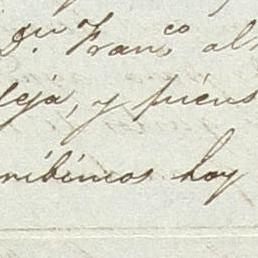 D.ⁿ Franc.ᶜᵒ al
leja, y piens
cribimos hoy